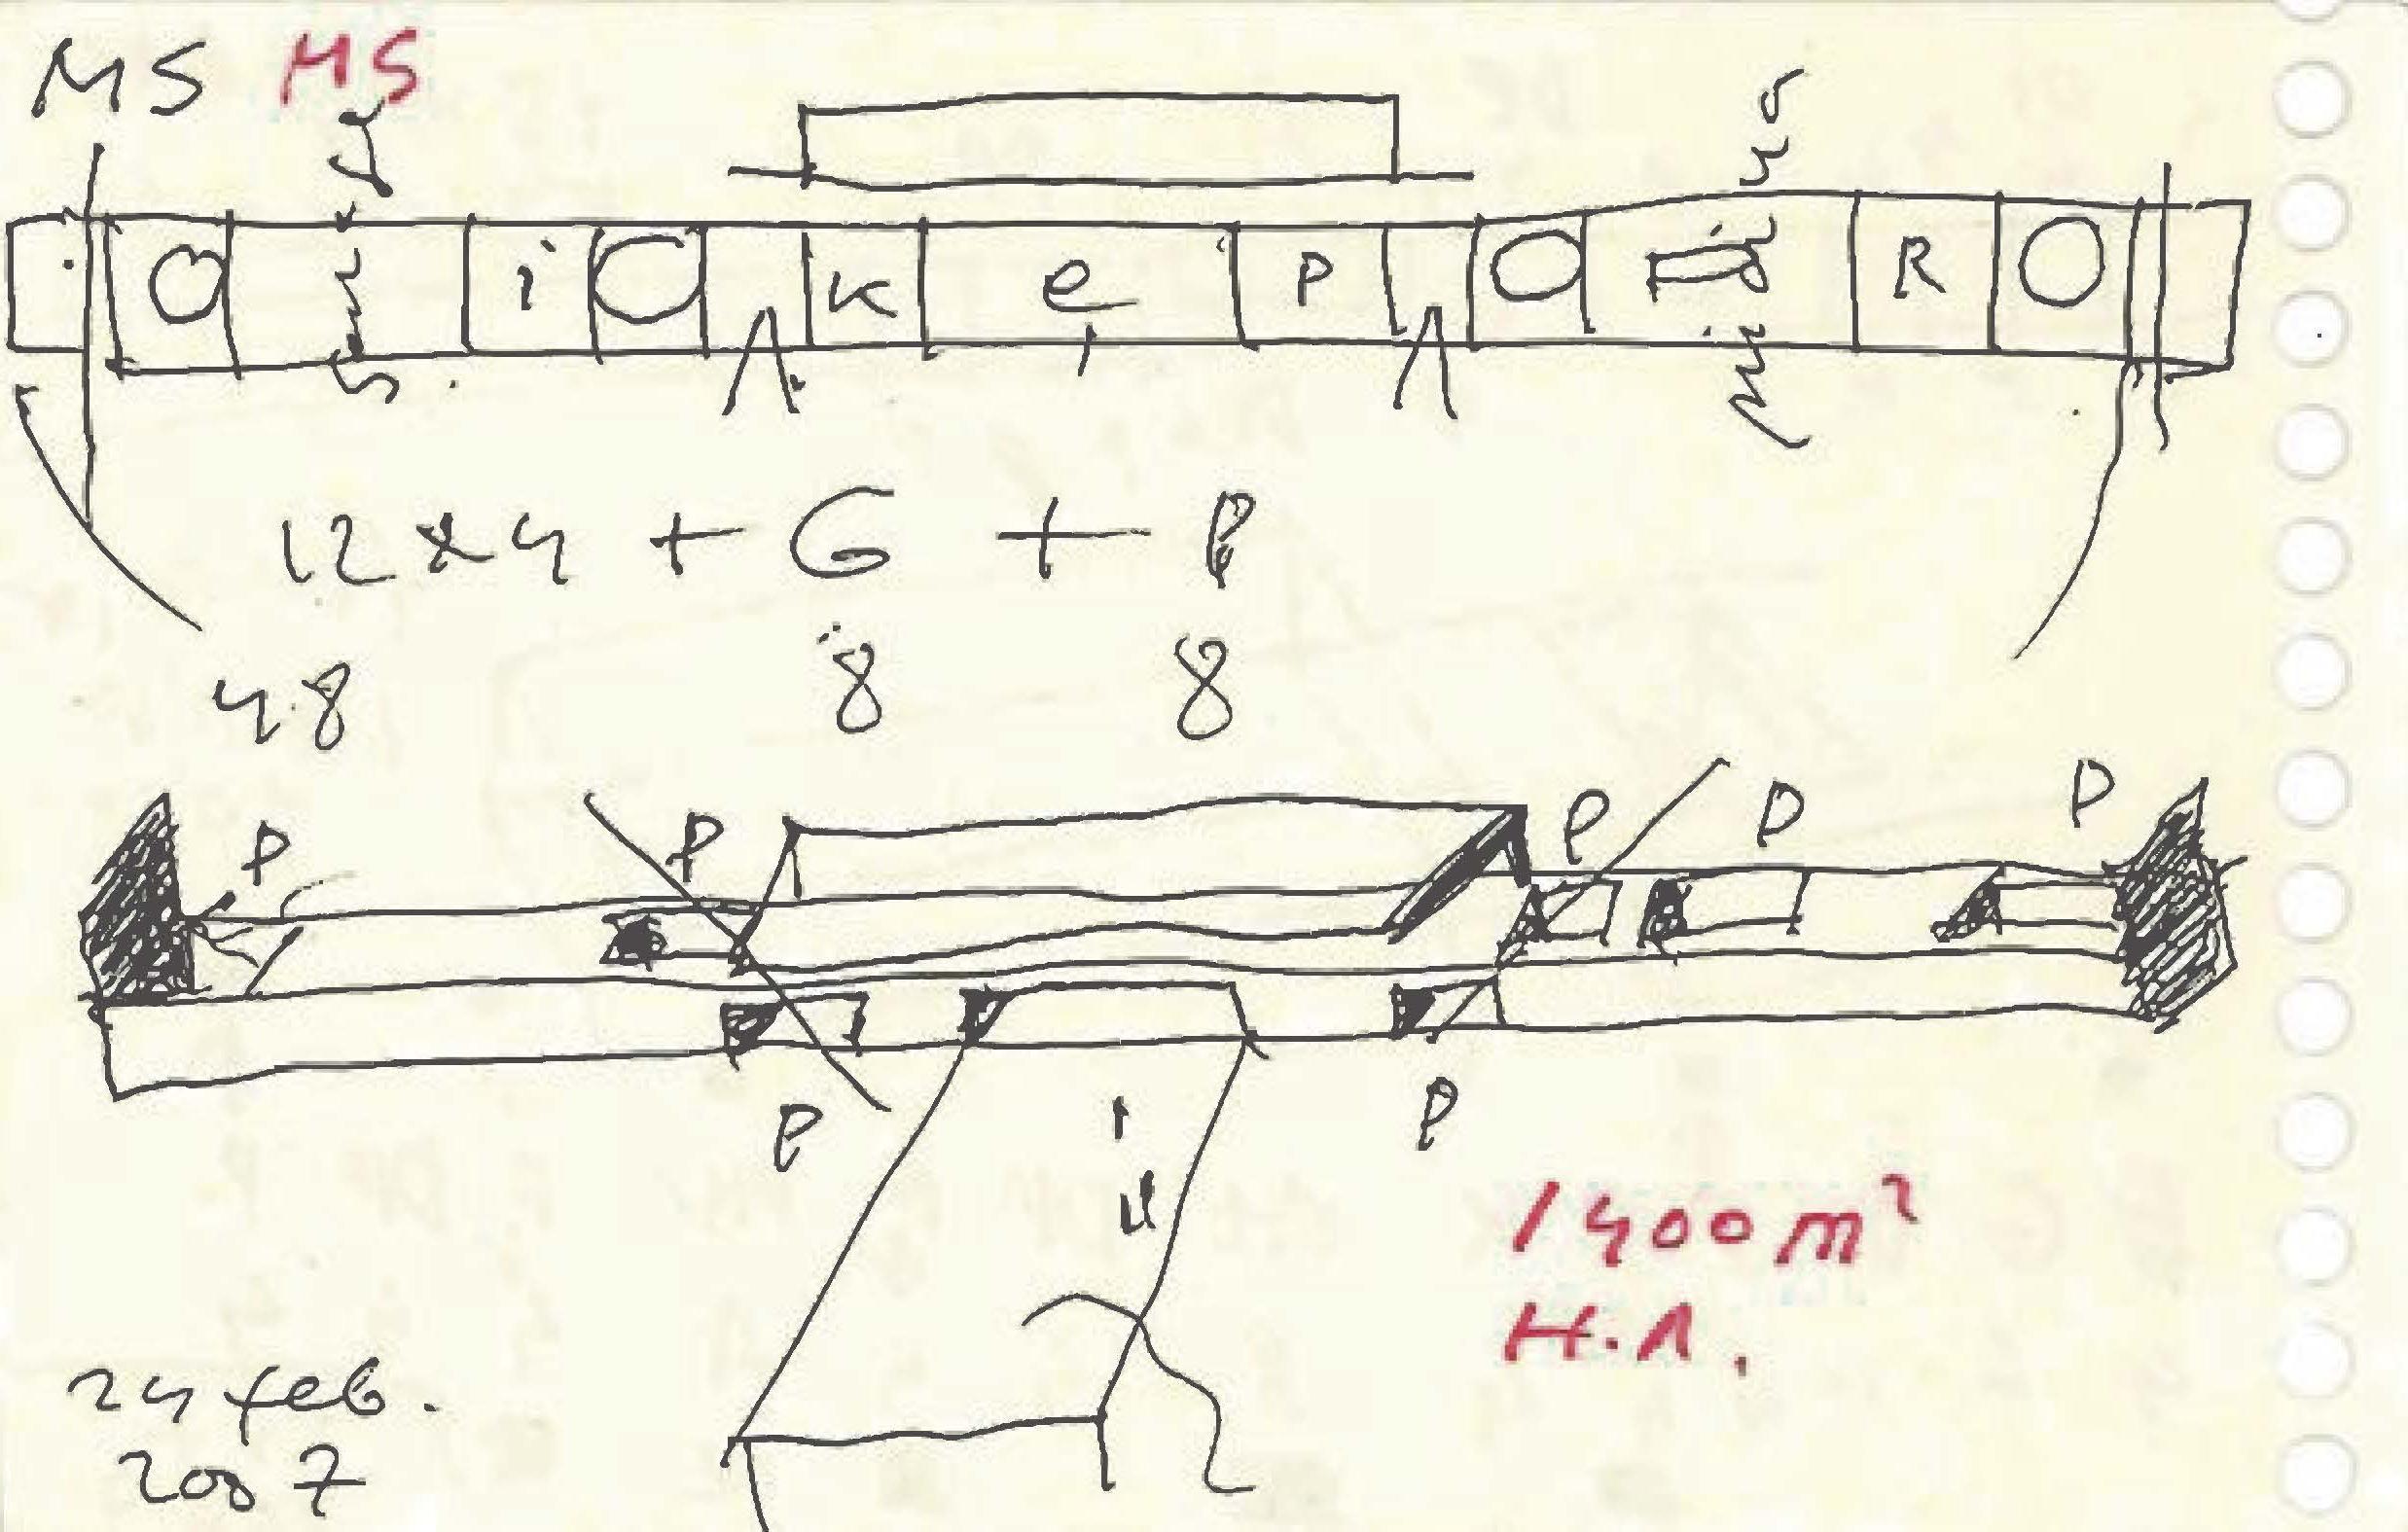 MS MS
O i O K e P O R O
12 x 4 + G + P
48 8 8
P P P P P
P P
1400 m²
H.A.
24 feb.
2007